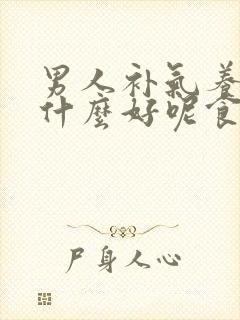 男人补氣養
什麼好呢食
尸身人心